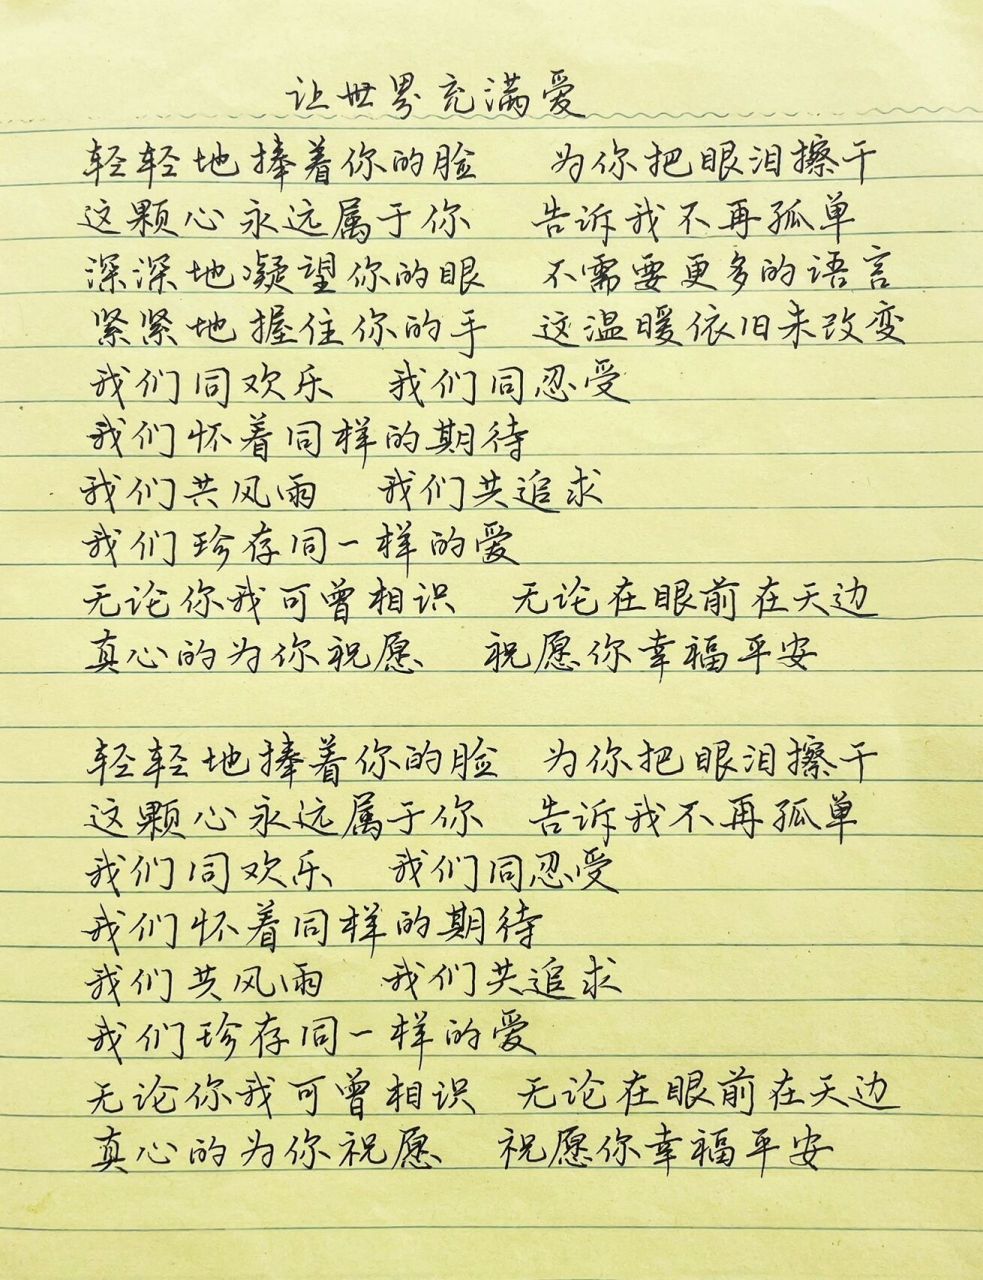 让世界充满爱
轻轻地捧着你的脸 为你把眼泪擦干
这颗心永远属于你 告诉我不再孤单
深深地凝望你的眼 不需要更多的语言
紧紧地握住你的手 这温暖依旧未改变
我们同欢乐 我们同忍受
我们怀着同样的期待
我们共风雨 我们共追求
我们珍存同一样的爱
无论你我可曾相识 无论在眼前在天边
真心的为你祝愿 祝愿你幸福平安
轻轻地捧着你的脸 为你把眼泪擦干
这颗心永远属于你 告诉我不再孤单
我们同欢乐 我们同忍受
我们怀着同样的期待
我们共风雨 我们共追求
我们珍存同一样的爱
无论你我可曾相识 无论在眼前在天边
真心的为你祝愿 祝愿你幸福平安